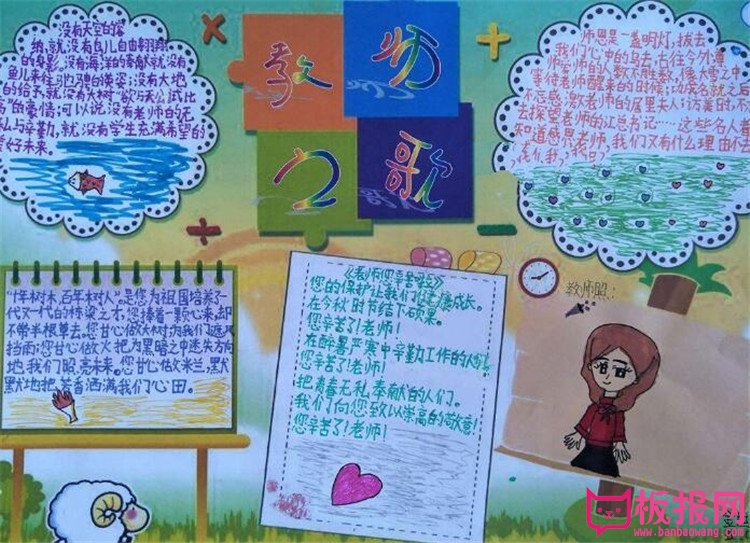 教师
之歌
没有天空的容
纳,就没有鸟儿自由翱翔
的身影;没有海洋的奉献就没有
鱼儿来往驰骋的英姿;没有大地
的给予,就没有大树欲与天公试比
高的豪情;可以说,没有老师的无
私与辛勤,就没有学生充满希望的
美好未来。
师恩是一盏明灯,拨去
我们心中的乌云,古往今来,尊
师爱师的人数不胜数,像大雪之中
等待老师醒来的时候;功成名就之后
不忘感激老师的居里夫人;访美时,不
去探望老师的江总书记……这些名人都
知道感恩老师,我们又有什么理由不去
"十年树木,百年树人"。是您为祖国培养了一
代又一代的栋梁之才,您捧着一颗心来,却
不带半根草去。您甘心做大树为我们遮风
挡雨;您甘心做火把为黑暗之中迷失方向
地我们照亮未来。您甘心做米兰,默
默地把芳香洒满我们心田。
《老师您辛苦了》
您的保护让我们健康成长。
在今秋时节结下硕果。
您辛苦了!老师!
在酷暑严寒中辛勤工作的人们,
您辛苦了!老师!
把青春无私奉献的人们。
我们向您致以崇高的敬意!
您辛苦了!老师!
教师照:
板报网
www.banbaowang.com